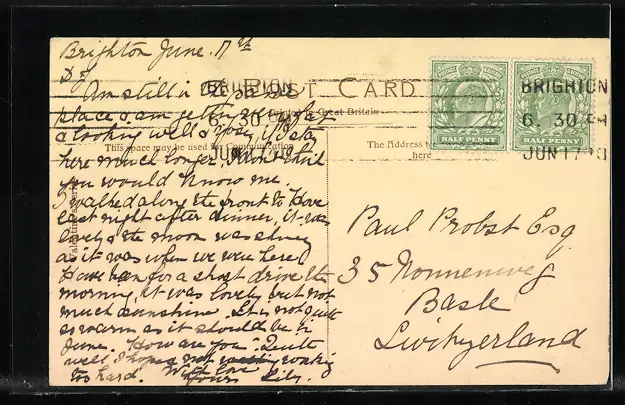 Brighton June. 17th
Am still in
POST CARD
BRIGHTON
6. 30 PM
JUN 17
HALF PENNY
HALF PENNY
BRIGHTON
6. 30 PM
JUN 17
place & am getting
Great Britain
& looking well & rosy, if I stay
This space may be used for Communication
The Address
here
here much longer, I don't think
you would know me.
I walked along the front to Hove
last night after dinner, it was
lovely & the moon was shining
as it was when we were here
Have been for a short drive this
morning, it was lovely but not
much sunshine. It is not quite
so warm as it should be in
June. How are you. Quite
well I hope & not working
too hard. With love
Yours Lily.
Paul Probst Esq
35 Nonnenweg
Basle
Switzerland